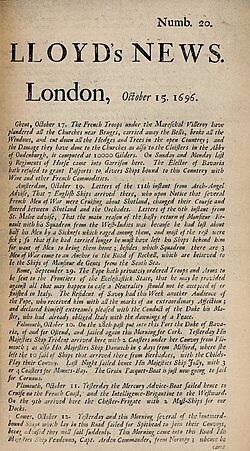 Numb. 20.
LLOYD's NEWS.
London, October 15. 1696.
Ghent, October 17. The French Troops under the Mareschal Villeroy have
plundered all the Churches near Bruges, carried away the Bells, broke all the
Windows, and cut down all the Hedges and Trees in the open Countrey; and
the Damage they have done to the Churches as also to the Cloisters in the Abby
of Oudenburgh, is computed at 10000 Gilders. On Sunday and Monday last
9 Regiments of Horse came into Garrison here. The Elector of Bavaria
hath refused to grant Pasports to divers Ships bound to this Countrey with
Wine and other French Commodities.
Amsterdam, October 19. Letters of the 12th instant from Arch-Angel
Advise, That 7 English Ships arrived there, who upon Notice that several
French Men of War were Cruising about Shetland, changed their Course and
steered between Shetland and the Orcades. Letters of the 6th instant from
St. Malo advise, That the main reason of the hasty return of Monsieur
with his Squadron from the West-Indies was because he had lost about
half his Men by a Sickness which raged among them, and most of the rest were
sick; so that if he had tarried longer he must have left his Ships behind him
for want of Men to bring them home; besides which Squadron there are 3
Men of War come to an Anchor in the Road of Rochell, which are believed to
be the Ships of Monsieur de Genes from the South Sea.
Rome, September 29. The Pope hath privately ordered Troops and Arms to
be sent to the Frontiers of the Ecclesiastick State, that he may be provided
against all that may happen in case a Neutrality should not be accepted of or
admitted in Italy. The Resident of Savoy had this Week another Audience of
the Pope, who received him with all the marks of an extraordinary Affection
and declared himself extreamly pleased with the Conduct of the Duke his Ma-
ster, who had already obliged Italy with the dawning of a Peace.
Falmouth, October 10. On the 28th past put into this Port the Duke of Bava-
ria, of and for Ostend, and sailed again this Morning for Cork. Yesterday His
Majesties Ship Tredagh arrived here with 2 Coasters under her Convoy from Ply-
mouth; as also His Majesties Ship Dunwich in 9 days from Milford, where she
left the 10 sail of Ships that arrived there from Barbadoes, with the Childs
Play their Convoy. Last Night sailed hence His Majesties Ship July, with 2
or 3 Coasters for Mounts-Bay. The Groin Pacquet-Boat is just now going to sail
for Corunna.
Plymouth, October 11. Yesterday the Mercury Advice-Boat sailed hence to
Cruise on the French Coast, and the Intelligence-Brigantine to the Westward.
On the 9th arrived here the Chester-Frigate with 2 Mast-Ships for our
Docks.
Cowes, October 12. Yesterday and this Morning several of the outward-
bound Ships which lay in this Road sailed for Spithead to join their Convoys,
being advised they will sail suddenly. This Morning came into this Road His
Majesties Ship Pendennis, Capt. Arden Commander, from Norway; whence he
came